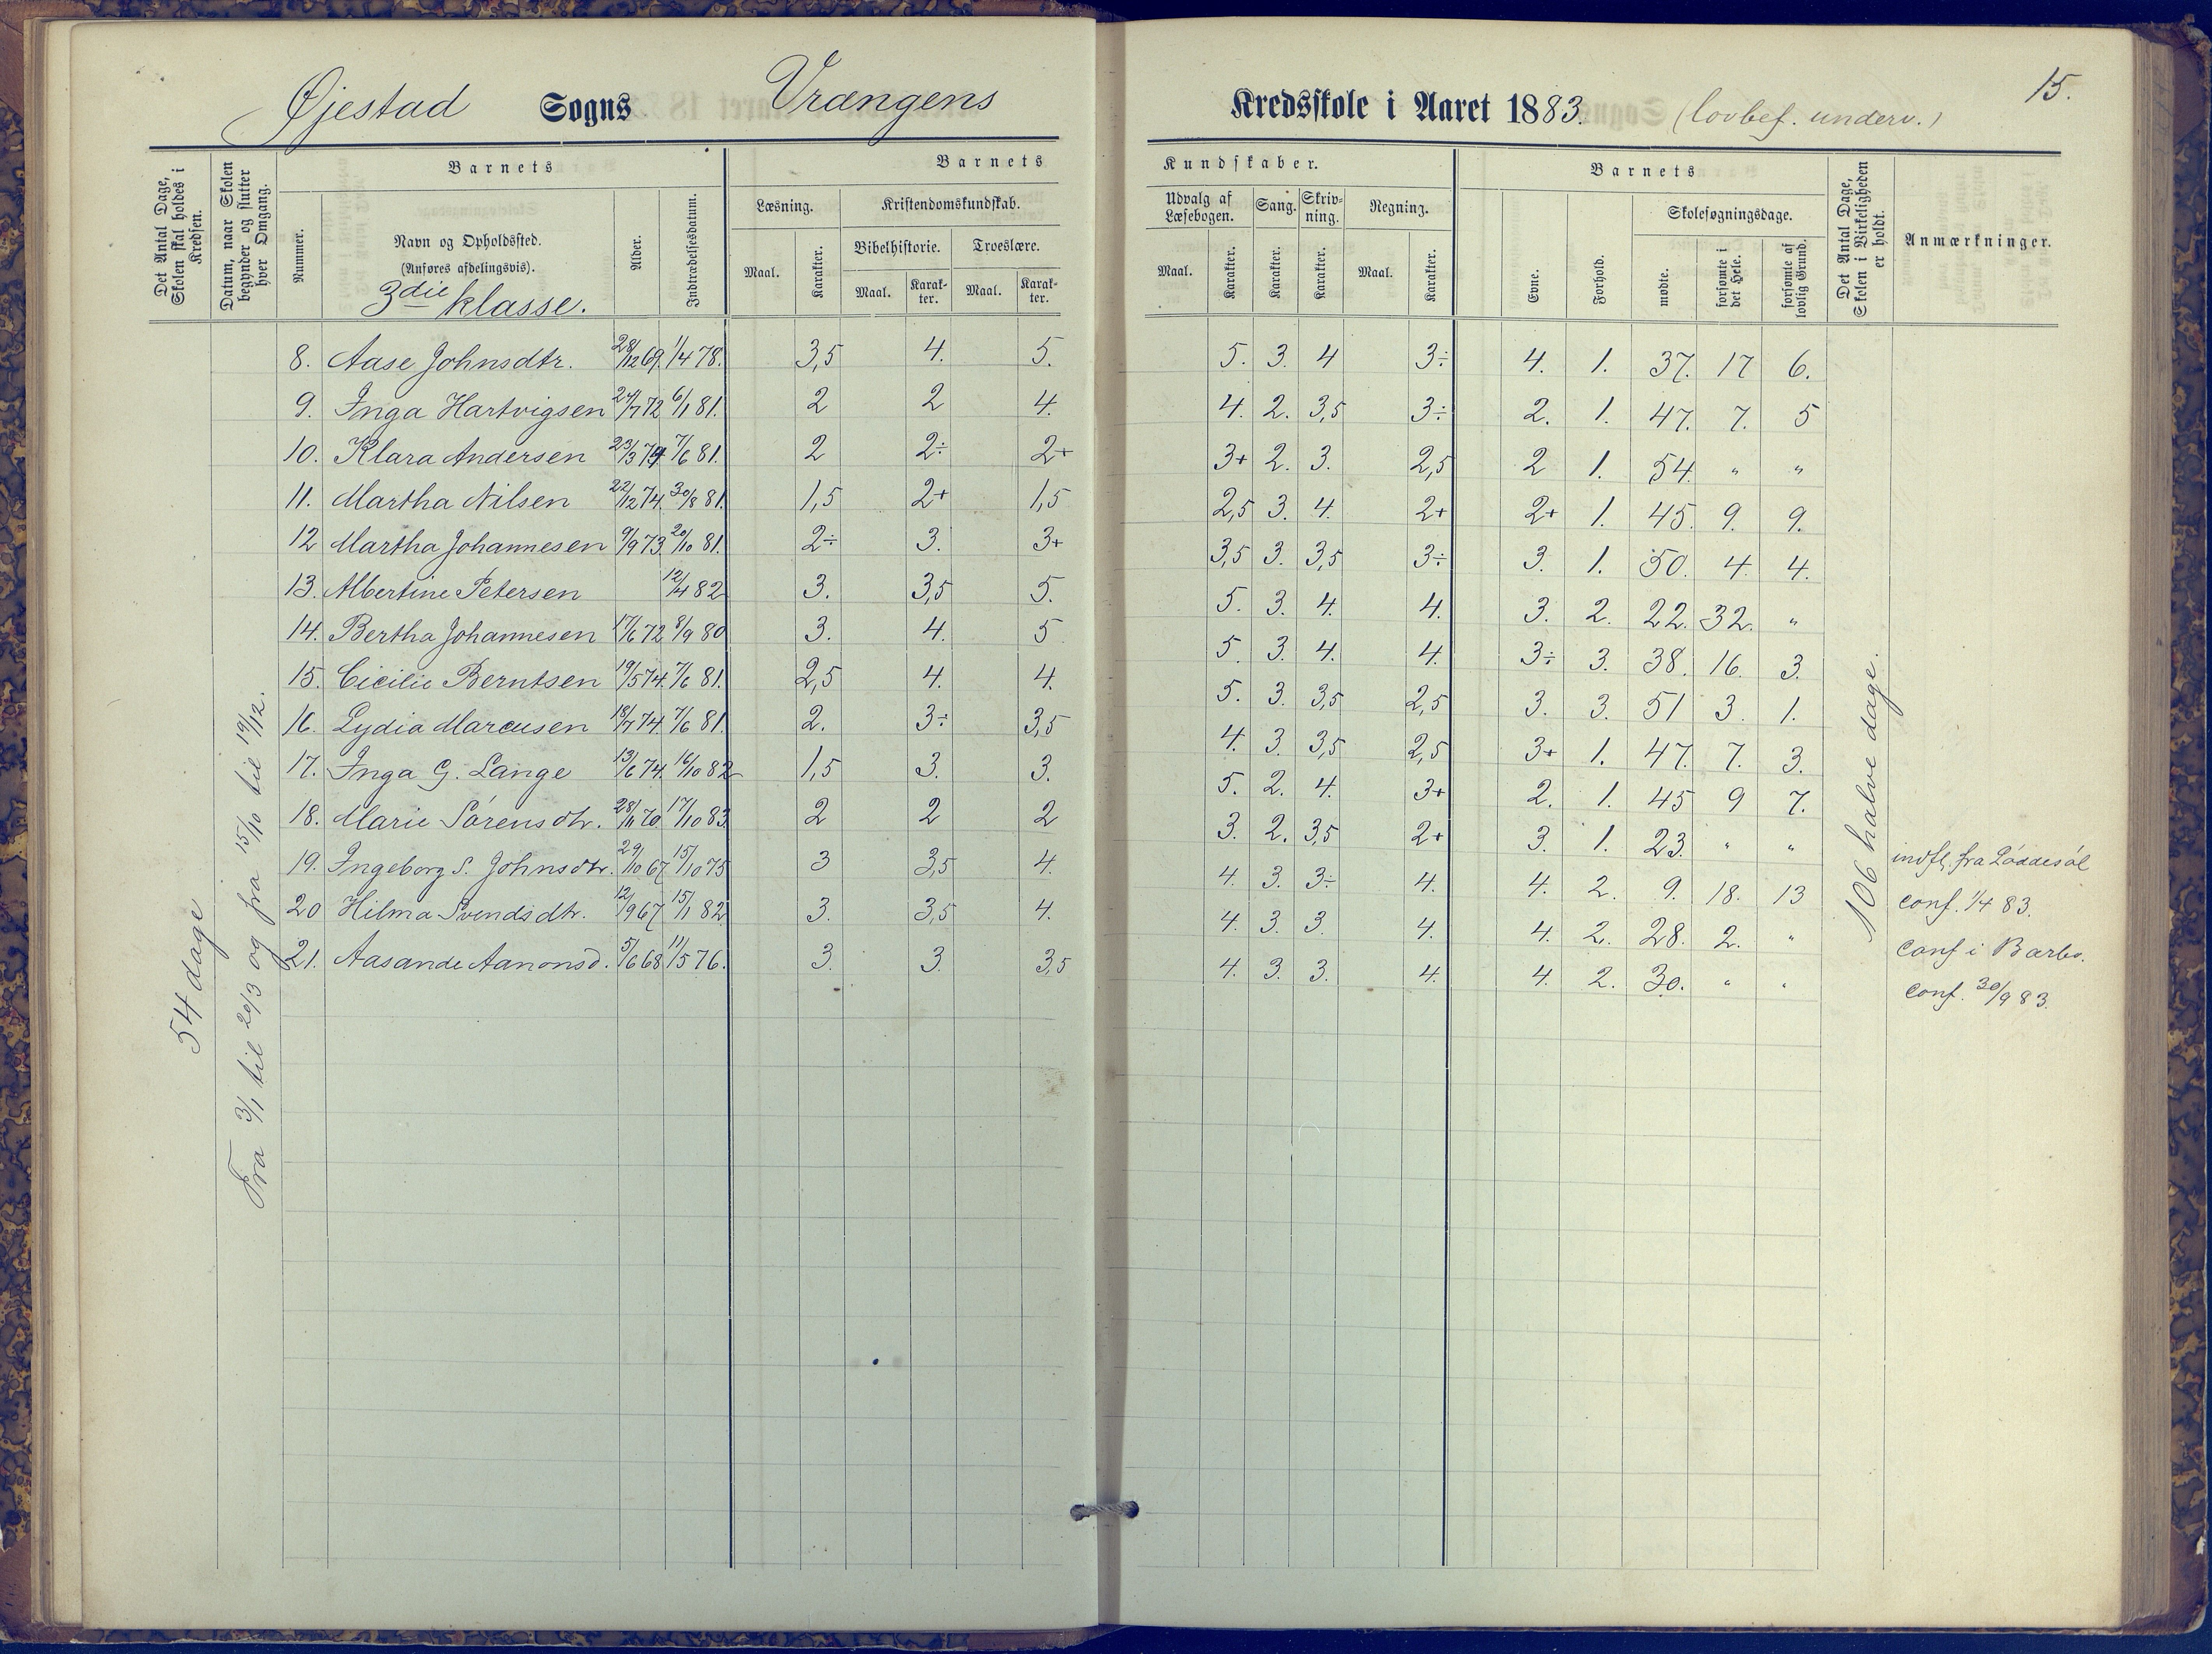 Øjestad Sogns Vrængens Kredsskole i Aaret 1883. (lovbef. underv.) 15.
Det Antal Dage, Skolen skal holdes i Kredsen.
Datum, naar Skolen begynder og slutter hver Omgang.
Barnets
Nummer.
Navn og Opholdssted.
(Anføres afdelingsvis).
3die klasse.
Alder.
Indtrædelsesdatum.
Barnets Kundskaber.
Læsning.
Maal. Karakter.
Kristendomskundskab.
Bibelhistorie. Troeslære.
Maal. Karakter. Maal. Karakter.
Udvalg af Læsebogen.
Maal. Karakter.
Sang. Karakter.
Skrivning. Karakter.
Regning.
Maal. Karakter.
Barnets
Evne. Forhold.
Skolesøgningsdage.
mødte. forsømte i det Hele. forsømte af lovlig Grund.
Det Antal Dage, Skolen i Virkeligheden er holdt.
Anmærkninger.
54 dage
Fra 3/1 til 20/3 og fra 15/10 til 19/12.
8. Aase Johnsdtr. 28/12 69. 1/4 78. 3,5 4. 5. 5. 3. 4 3÷ 4. 1. 37. 17 6.
9. Inga Hartvigsen 24/7 72 6/1 81. 2 2 4. 4. 2. 3,5 3÷ 2. 1. 47. 7. 5
10. Klara Andersen 23/3 74 7/6 81. 2 2÷ 2+ 3+ 2. 3. 2,5 2 1. 54. " "
11. Martha Nilsen 22/12 74. 30/8 81. 1,5 2+ 1,5 2,5 3. 4. 2+ 2+ 1. 45. 9. 9.
12 Martha Johannesen 9/9 73. 20/10 81. 2÷ 3. 3+ 3,5 3. 3,5 3÷ 3. 1. 50. 4. 4.
13. Albertine Petersen 12/4 82 3. 3,5 5. 5. 3. 4. 4. 3. 2. 22. 32. "
14. Bertha Johannesen 17/6 72 8/9 80 3. 4. 5 5. 3. 4. 4. 3÷ 3. 38. 16. 3.
15. Cicilie Berntsen 19/5 74. 7/6 81. 2,5 4. 4. 5. 3. 3,5 2,5 3. 3. 51 3. 1.
16. Lydia Marcusen 18/7 74. 7/6 81. 2. 3÷ 3,5 4. 3. 3,5 2,5 3+ 1. 47. 7. 3.
17. Inga G. Lange 13/6 74. 16/10 82 1,5 3. 3. 5. 2. 4. 3+ 2. 1. 45 9 7.
18. Marie Sørensdtr. 28/11 70. 17/10 83. 2 2 2 3. 2. 3,5 2+ 3. 1. 23. " " indfl. fra Løddesøl
19. Ingeborg S. Johnsdtr. 29/10 67 15/10 75 3 3,5 4. 4. 3. 3÷ 4. 4. 2. 9. 18. 13 conf. 1/4 83.
20 Hilma Svendsdtr. 12/9 67 15/1 82 3. 3,5 4. 4. 3. 3. 4. 4. 2. 28. 2. " conf i Barbo.
21. Aasande Aanonsd. 5/6 68 11/5 76. 3. 3. 3,5 4. 3. 3. 4. 4. 2. 30. " " conf. 30/9 83.
106 halve dage.